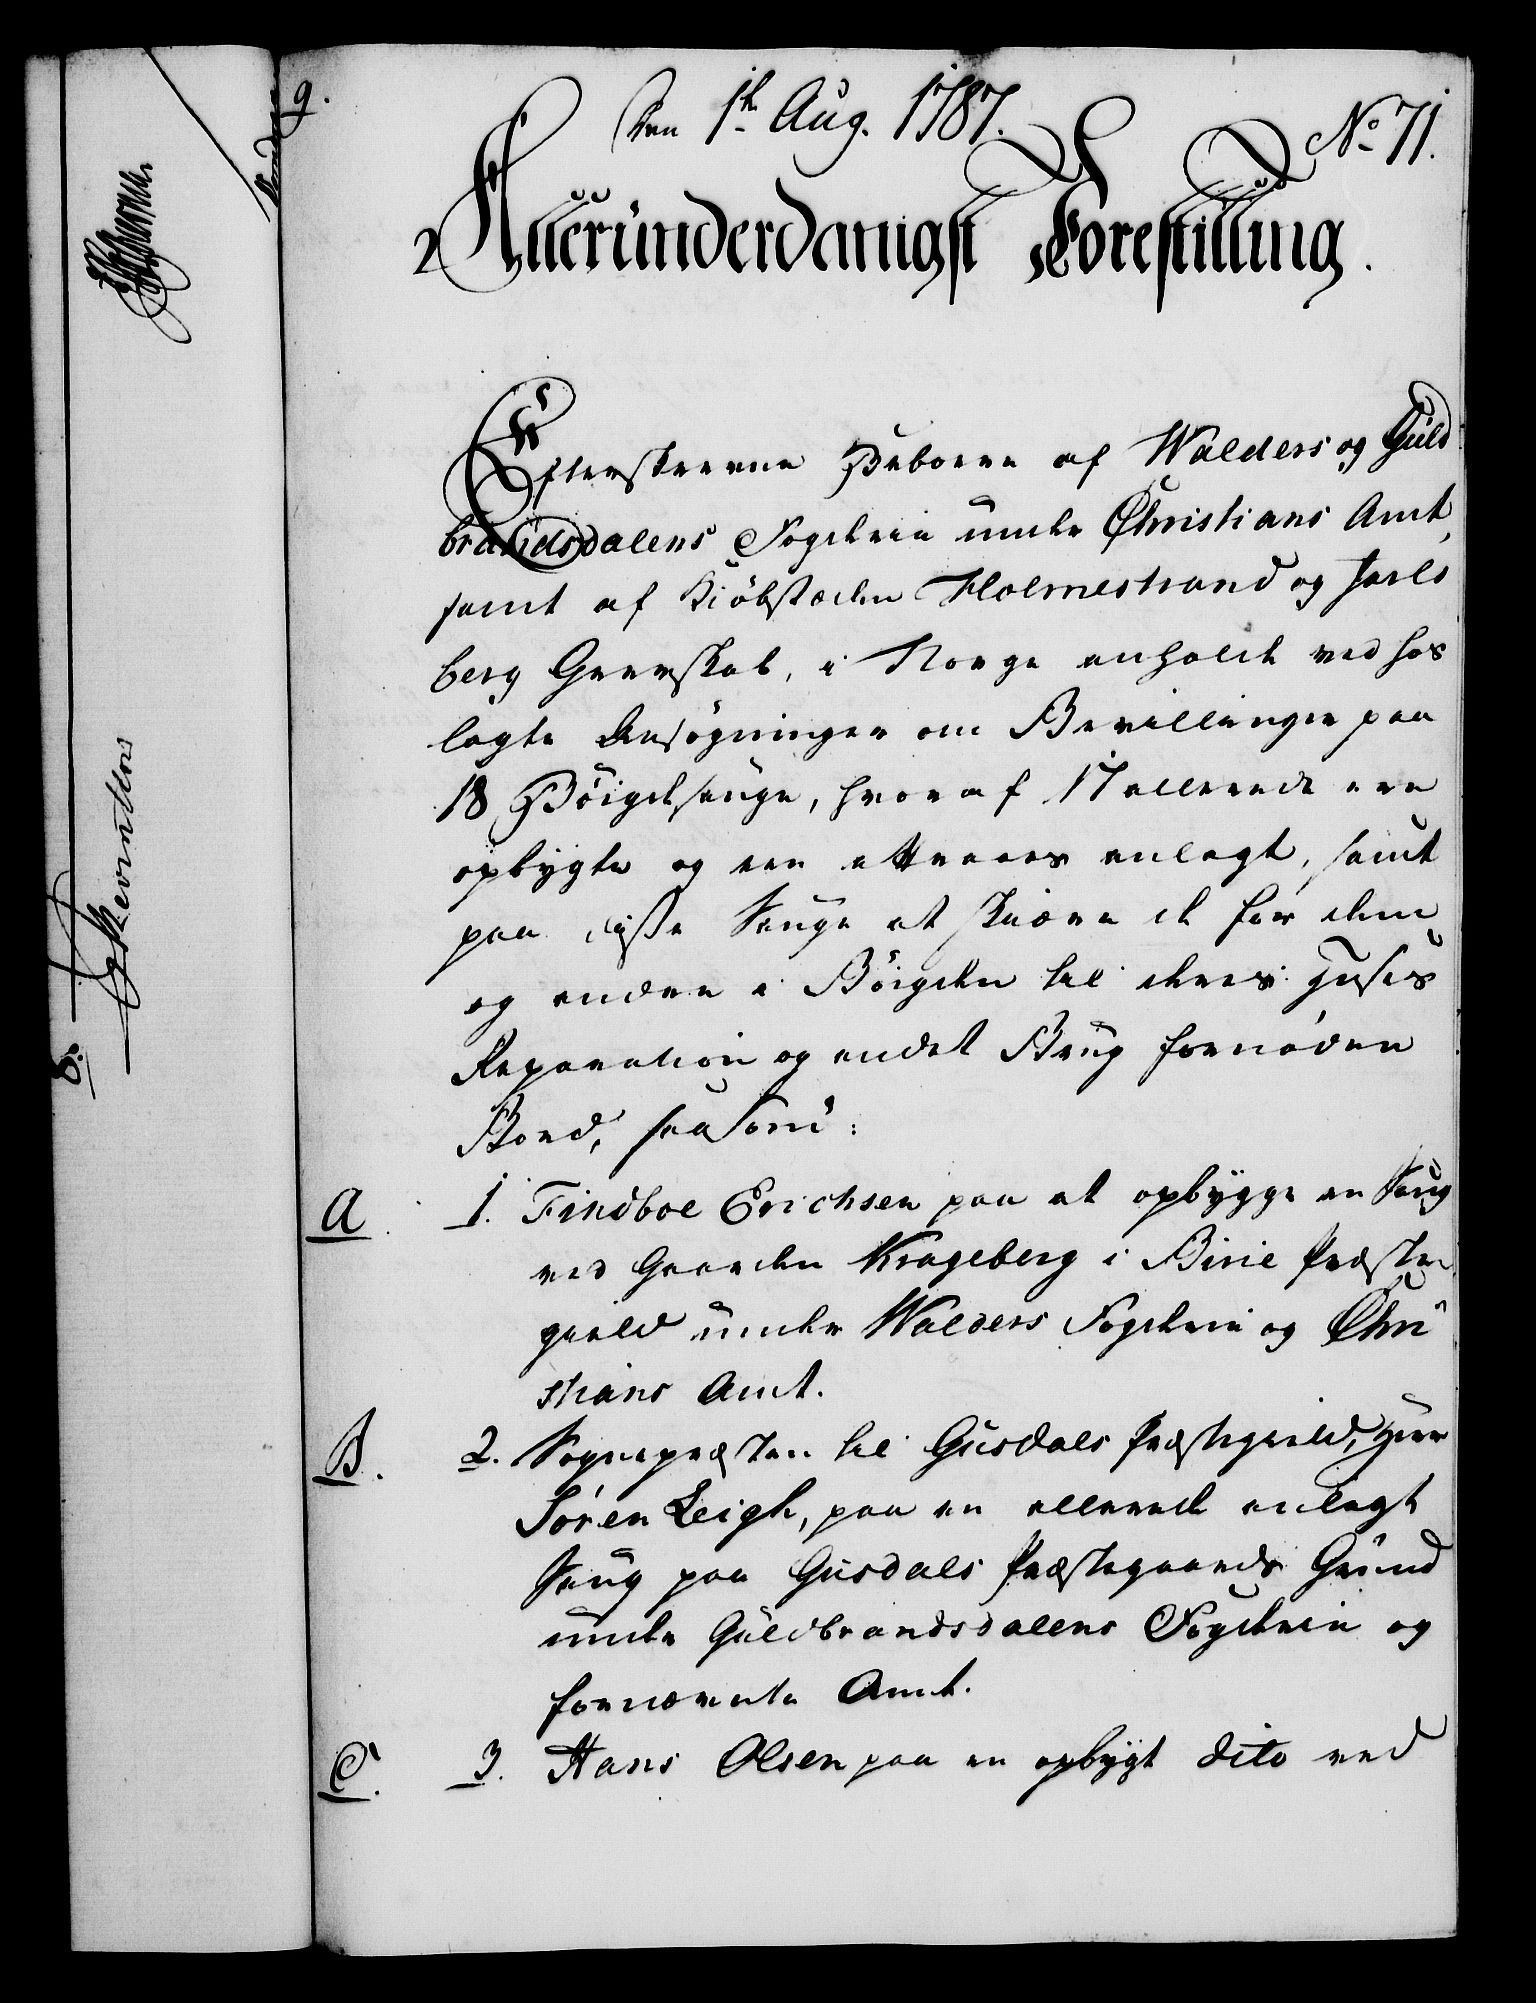 den 1te Aug. 1787.
No 71.
Alleründerdanigst Forestilling.
Efterskrevne Beboere af Walders og Guld
brandsdalens Fogderie under Christians Amt,
samt af Kiöbstæden Holmestrand og Jarls
berg Grevskab, i Norge anholde ved hos
lagte Ansøgninger om Bevillinger paa
18 Bÿigdesauge, hvoraf 17 allerede ere
opbygte og een attraaes anlagt, samt
paa disse Sauge at skiære de for dem
og andre i Böigden til deres Huses
Reparation og andet Brug fornøden
Bord, saasom:
A 1. Findboe Erichsen paa at opbygge en Saug
ved Gaarden Krageberg i Birie Præste
gield under Walders Fogderie og Chri
stians Amt.
B. 2. Sognepræsten til Gusdals Præstegield, Herr
Sören Leigh, paa en allerede anlagt
Saug paa Gusdals Præstegaards Grund
under Guldbrandsdalens Fogderie og
fornævnte Amt.
C. 3. Hans Olsen paa en opbygt dito ved
8.